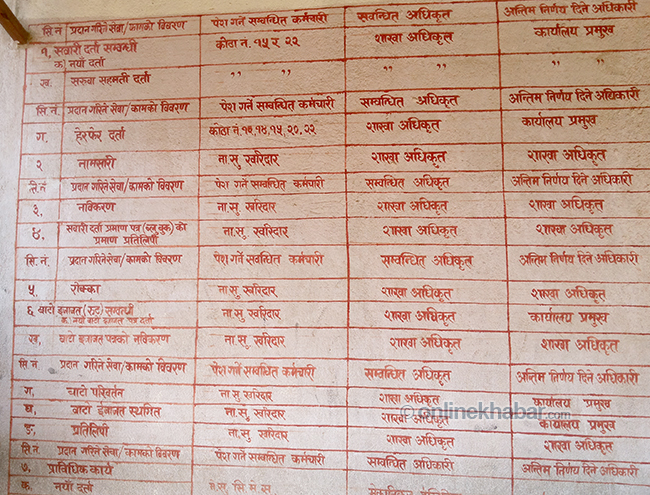 सि.नं प्रदान गरिने सेवा/कामको विवरण पेश गर्ने सम्वन्धित कर्मचारी सवन्धित अधिकृत अन्तिम निर्णय दिने अधिकारी
१. सवारी दर्ता सम्वन्धी कोठा नं. १५ र २२ शाखा अधिकृत कार्यालय प्रमुख
क) नयाँ दर्ता
ख. सरुवा सहमती दर्ता ,, ,, ,, ,, ,, ,,
सि.नं. प्रदान गरिने सेवा/कामको विवरण पेश गर्ने सम्वन्धित कर्मचारी सम्वन्धित अधिकृत अन्तिम निर्णय दिने अधिकारी
ग. हेरफेर दर्ता कोठा नं. १३,१४,१५,२०,२२ शाखा अधिकृत कार्यालय प्रमुख
२ नामसारी ना.सु खरिदार शाखा अधिकृत शाखा अधिकृत
सि.नं प्रदान गरिने सेवा/कामको विवरण पेश गर्ने सम्वन्धित कर्मचारी सम्वन्धित अधिकृत अन्तिम निर्णय दिने अधिकारी
३. नविकरण ना.सु खरिदार शाखा अधिकृत शाखा अधिकृत
४. सवारी दर्ता प्रमाण पत्र (ब्लु बुक) को ना.सु खरिदार शाखा अधिकृत शाखा अधिकृत
प्रमाण प्रतिलिपी
सि.नं. प्रदान गरिने सेवा/कामको विवरण पेश गर्ने सवन्धित कर्मचारी सम्वन्धित अधिकृत अन्तिम निर्णय दिने अधिकारी
५. रोक्का ना.सु खरिदार शाखा अधिकृत शाखा अधिकृत
६ वाटो इजाजत (रुट) सम्वन्धी ना.सु खरिदार शाखा अधिकृत कार्यालय प्रमुख
क) नयाँ वाटो इजाजत पत्र दर्ता
ख. वाटो इजाजत पत्रको नविकरण ना.सु खरिदार शाखा अधिकृत शाखा अधिकृत
सि.नं प्रदान गरिने सेवा/कामको विवरण पेश गर्ने सम्वन्धित कर्मचारी सम्वन्धित अधिकृत अन्तिम निर्णय दिने अधिकारी
ग. वाटो परिवर्तन ना.सु खरिदार शाखा अधिकृत कार्यालय प्रमुख
घ. वाटो इजाजत स्थगित ना.सु खरिदार शाखा अधिकृत कार्यालय प्रमुख
© onlinekhabar.com
ङ. प्रतिलिपी ना.सु खरिदार शाखा अधिकृत शाखा अधिकृत
सि.नं प्रदान गरिने सेवा/कामको विवरण पेश गर्ने सम्वन्धित कर्मचारी सम्वन्धित अधिकारी अन्तिम निर्णय दिने अधिकारी
७. प्राविधिक कार्य
क. नयाँ दर्ता